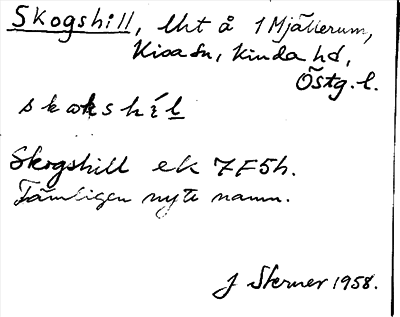 Skogshill, lht å 1 Mjällerum,
Kisa sn, Kinda hd,
Östg. l.
skωkshíl
Skogshill ek 7F5h.
Tämligen nytt namn.
J Sterner 1958.